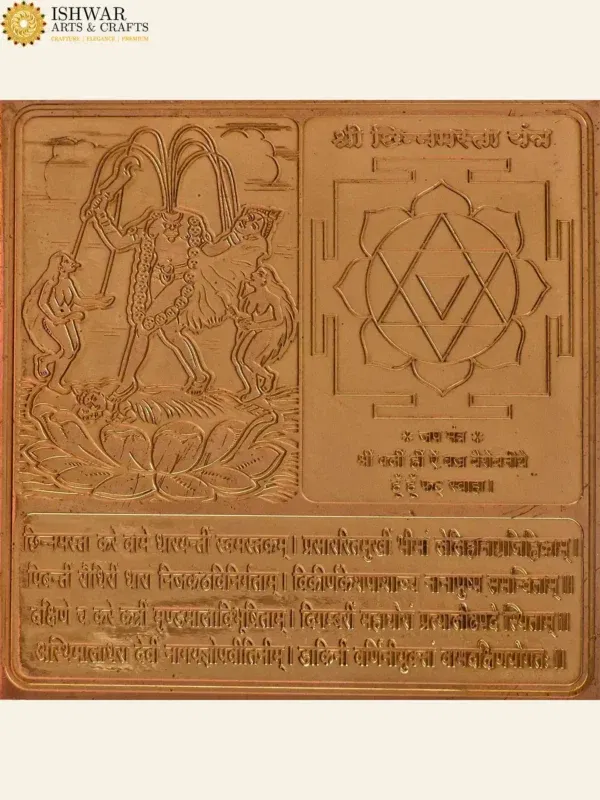 ISHWAR
ARTS & CRAFTS
ELEGANCE | PREMIUM
श्री छिन्नमस्ता यंत्र
* जप मंत्र *
श्री क्लीं ह्रीं ऐं वज्र वैरोचनीये
हूँ हूँ फट् स्वाहा।
छिन्नमस्ता करे वामे धारयन्तीं स्वमस्तकम्। प्रसारितमुखीं भीमां
पिबन्तीं रौधिरीं धारा निजकंठविनिर्गताम्। विकीर्णकेशपाशाञ्च नानापुष्प समन्विताम्॥
दक्षिणे च करे कर्त्रीं मुण्डमालाविभूषिताम्। दिगम्बरीं महाघोरां प्रत्यालीढपदे स्थिताम्॥
अस्थिमालाधरा देवीं नागयज्ञोपवीतिनीम्। डाकिनी वर्णिनीयुक्तां वामदक्षिणयोगतः॥